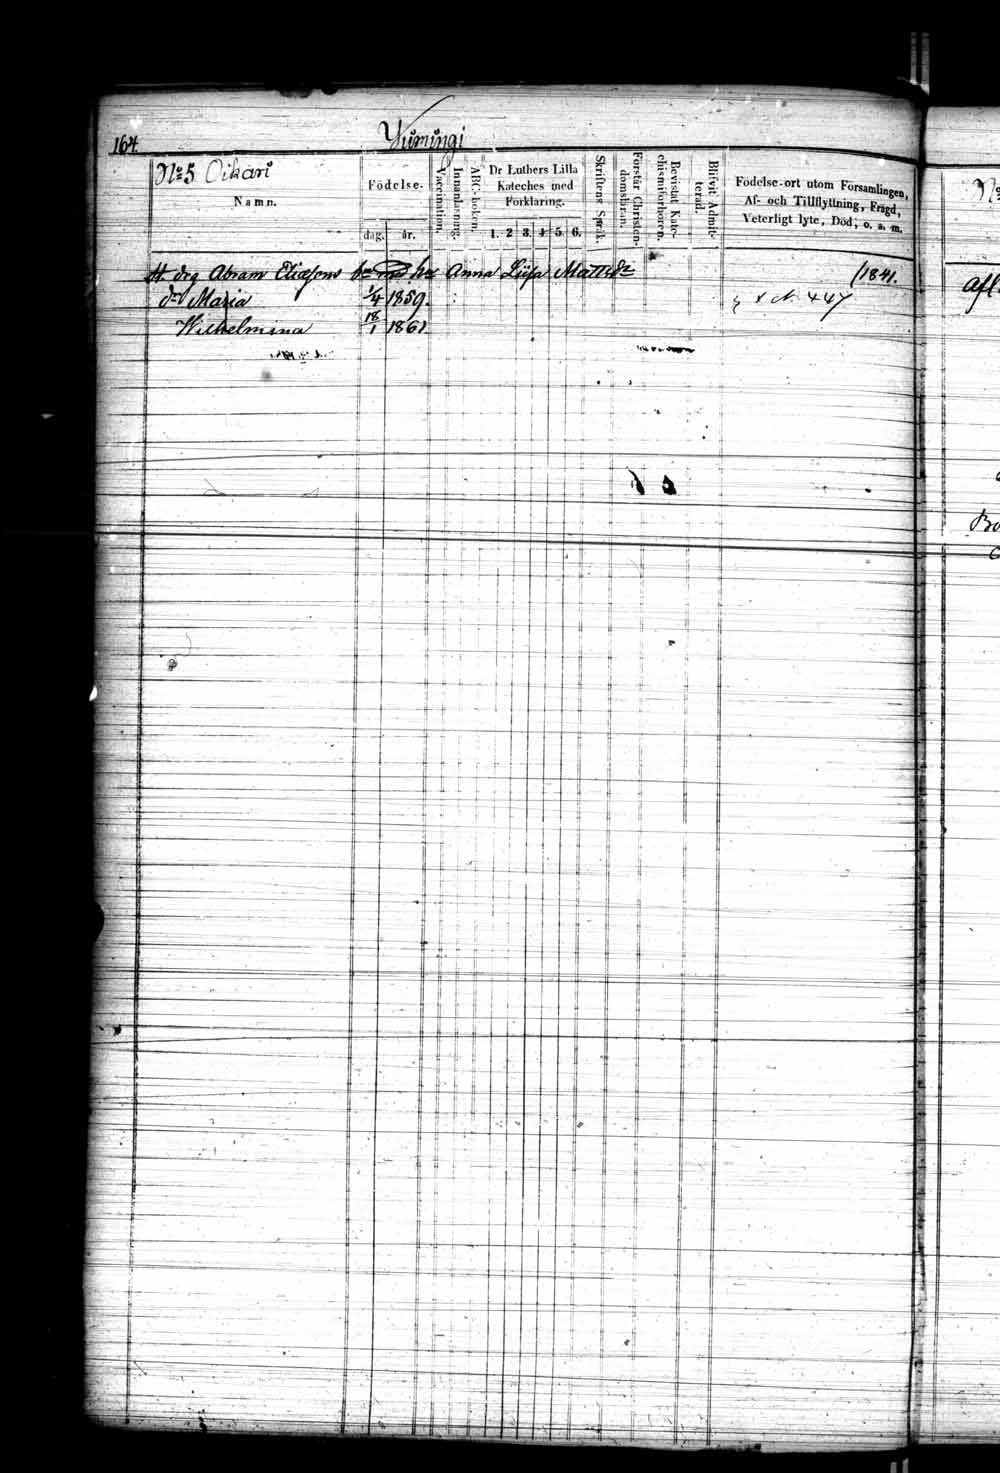 164.
Yümingi
No 5 Oikari
Namn.
Födelse.
dag. år.
Vaccination.
Innanläsning.
ABC-boken.
Dr Luthers Lilla
Kateches med
Förklaring.
1. 2. 3. 4. 5. 6.
Skriftens Språk.
Förstår Christen-
domsläran.
Bevistat Kate-
chismiförhören.
Blifvit Admit-
terad.
Födelse-ort utom Församlingen,
Af- och Tillflyttning, Frägd,
Veterligt lyte, Död, o. s. m.
drg Abram Eliæsons Anna Liisa Mattsdr /1841.
dr Maria 1/4 1859.
Wilhelmina 18/1 1861
N. 447
No
Afl
Bo